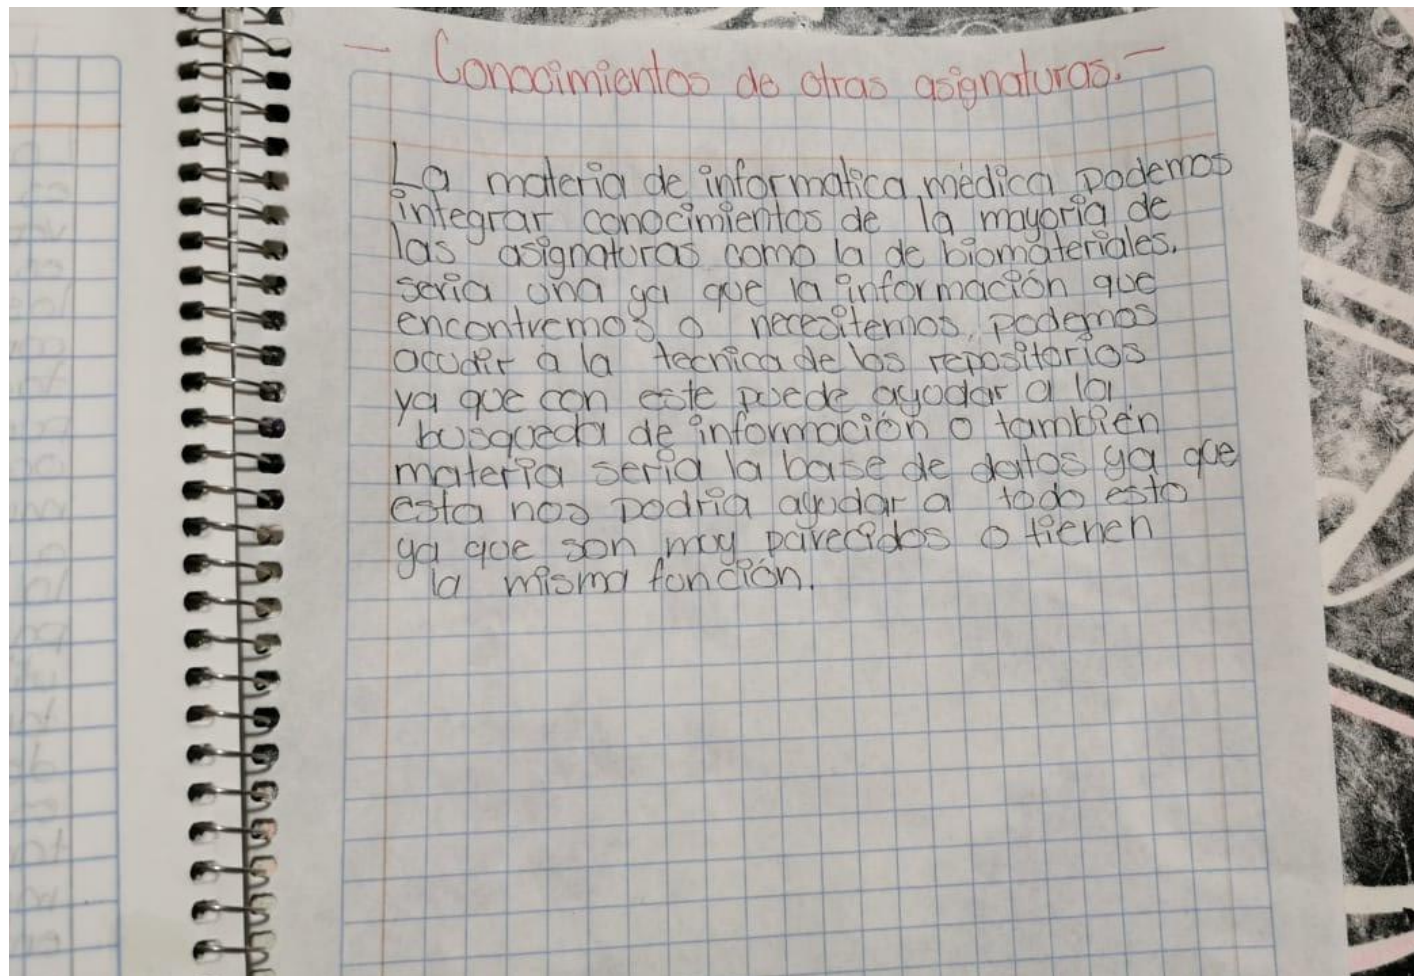 - Conocimientos de otras asignaturas. -
La materia de informatica médica podemos
integrar conocimientos de la mayoria de
las asignaturas como la de biomateriales.
seria una ya que la información que
encontremos o necesitemos, podemos
acudir a la tecnica de los repositorios
ya que con este puede ayudar a la
busqueda de información o también
materia seria la base de datos ya que
esta nos podria ayudar a todo esto
ya que son muy parecidos o tienen
la misma función.